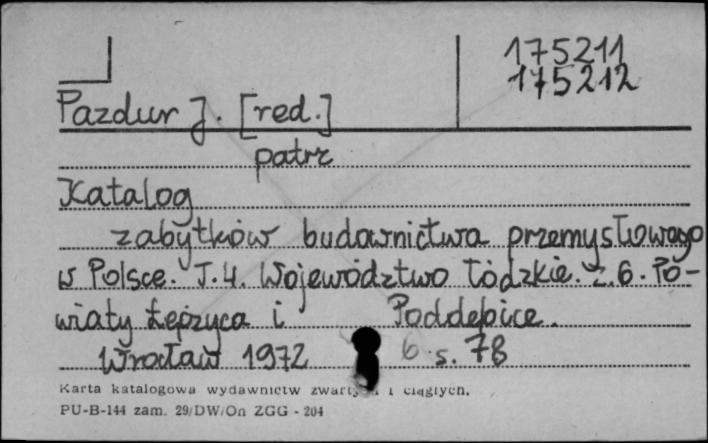 175211
175212
Pazdur J. [red.]
patrz
Katalog
zabytków budownictwa przemysłowego
w Polsce. T.4. Województwo łódzkie. z.6. Po-
wiaty Łęczyca i Poddębice.
Wrocław 1972 6 s. 78
Karta katalogowa wydawnictw zwartych i ciągłych.
PU-B-144 zam. 29/DW/On ZGG - 204